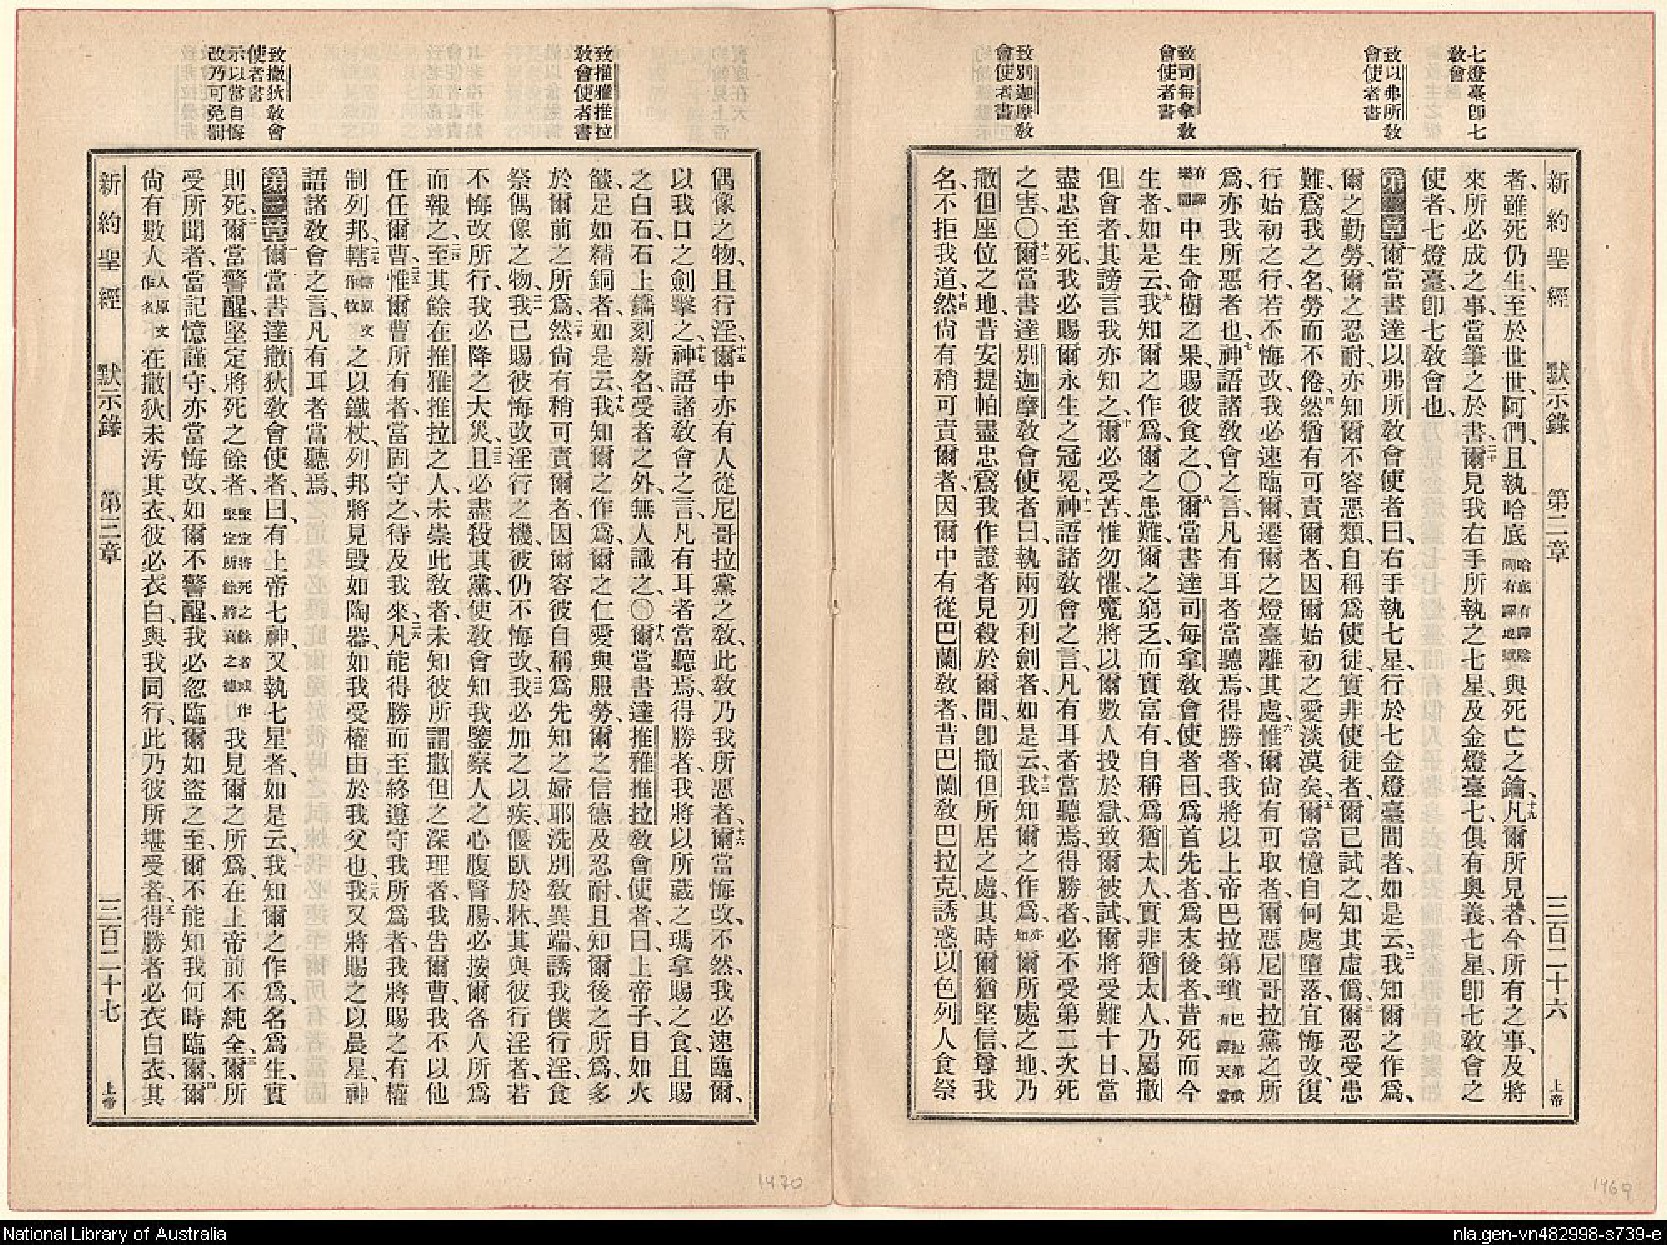 七燈臺卽七
敎會
致以弗所敎
會使者書
致司每拿敎
會使者書
致別迦摩敎
會使者書
新約聖經 默示錄 第二章 三百二十六 上帝
者、雖死仍生、至於世世、阿們、且執哈底哈底有譯陰間有譯地獄與死亡之鑰、十九凡爾所見者、今所有之事、及將
來所必成之事、當筆之於書、二十爾見我右手所執之七星、及金燈臺七、俱有奧義、七星卽七敎會之
使者、七燈臺、卽七敎會也、
第二章一爾當書達以弗所敎會使者曰、右手執七星、行於七金燈臺間者、如是云、二我知爾之作爲、
爾之勤勞、爾之忍耐、亦知爾不容惡類、自稱爲使徒、實非使徒者、爾已試之、知其虛僞、三爾忍受患
難、爲我之名、勞而不倦、四然猶有可責爾者、因爾始初之愛淡漠矣、五爾當憶自何處墮落、宜悔改、復
行始初之行、若不悔改、我必速臨爾、遷爾之燈臺、離其處、六惟爾尙有可取者、爾惡尼哥拉黨之所
爲、亦我所惡者也、七神語諸敎會之言、凡有耳者當聽焉、得勝者、我將以上帝巴拉第瑣巴拉第瑣有譯天堂
有譯樂園中生命樹之果、賜彼食之、〇八爾當書達司每拿敎會使者曰、爲首先者、爲末後者、昔死而今
生者、如是云、九我知爾之作爲、爾之患難、爾之窮乏、而實富有、自稱爲猶太人、實非猶太人、乃屬撒
但會者、其謗言我亦知之、十爾必受苦、惟勿懼、魔將以爾數人投於獄、致爾被試、爾將受難十日、當
盡忠至死、我必賜爾永生之冠冕、十一神語諸敎會之言、凡有耳者當聽焉、得勝者、必不受第二次死
之害、〇十二爾當書達別迦摩敎會使者曰、執兩刃利劍者、如是云、十三我知爾之作爲、亦知爾所處之地、乃
撒但座位之地、昔安提帕盡忠爲我作證者、見殺於爾間、卽撒但所居之處、其時爾猶堅信、尊我
名、不拒我道、十四然尙有稍可責爾者、因爾中有從巴蘭敎者、昔巴蘭敎巴拉克、誘惑以色列人食祭
致推雅推拉
敎會使者書
致撒狄敎會
使者書
示以當自悔
改乃可免罰
偶像之物、且行淫、十五爾中亦有人從尼哥拉黨之敎、此敎乃我所惡者、十六爾當悔改、不然、我必速臨爾、
以我口之劍擊之、十七神語諸敎會之言、凡有耳者當聽焉、得勝者、我將以所藏之瑪拿賜之食、且賜
之白石、石上鐫刻新名、受者之外、無人識之、〇十八爾當書達推雅推拉敎會使者曰、上帝子、目如火
燄、足如精銅者、如是云、十九我知爾之作爲、爾之仁愛、與服勞、爾之信德、及忍耐、且知爾後之所爲、多
於爾前之所爲、二十然尙有稍可責爾者、因爾容彼自稱爲先知之婦耶洗別、敎異端、誘我僕行淫、食
祭偶像之物、二一我已賜彼悔改淫行之機、彼仍不悔改、二二我必加之以疾、偃臥於牀、其與彼行淫者、若
不悔改所行、我必降之大災、二三且必盡殺其黨、使敎會知我鑒察人之心腹腎腸、必按爾各人所爲
而報之、二四至其餘在推雅推拉之人、未崇此敎者、未知彼所謂撒但之深理者、我告爾曹、我不以他
任任爾曹、二五惟爾曹所有者、當固守之、待及我來、二六凡能得勝、而至終遵守我所爲者、我將賜之有權
制列邦、二七轄轄原文作牧之以鐵杖、列邦將見毀如陶器、如我受權由於我父也、二八我又將賜之以晨星、神
語諸敎會之言、凡有耳者當聽焉、
第三章一爾當書達撒狄敎會使者曰、有上帝七神、又執七星者、如是云、我知爾之作爲、名爲生、實
則死、二爾當警醒、堅定將死之餘者、堅定將死之餘者或作堅定所餘將衰之德我見爾之所爲、在上帝前不純全、三爾所
受所聞者、當記憶謹守、亦當悔改、如爾不警醒、我必忽臨爾、如盜之至、爾不能知我何時臨爾、四爾
尙有數人人原文作名在撒狄、未污其衣、彼必衣白、與我同行、此乃彼所堪受者、五得勝者必衣白衣、其
新約聖經 默示錄 第三章 三百二十七 上帝
1470
1469
National Library of Australia
nla.gen-vn482998-s739-e